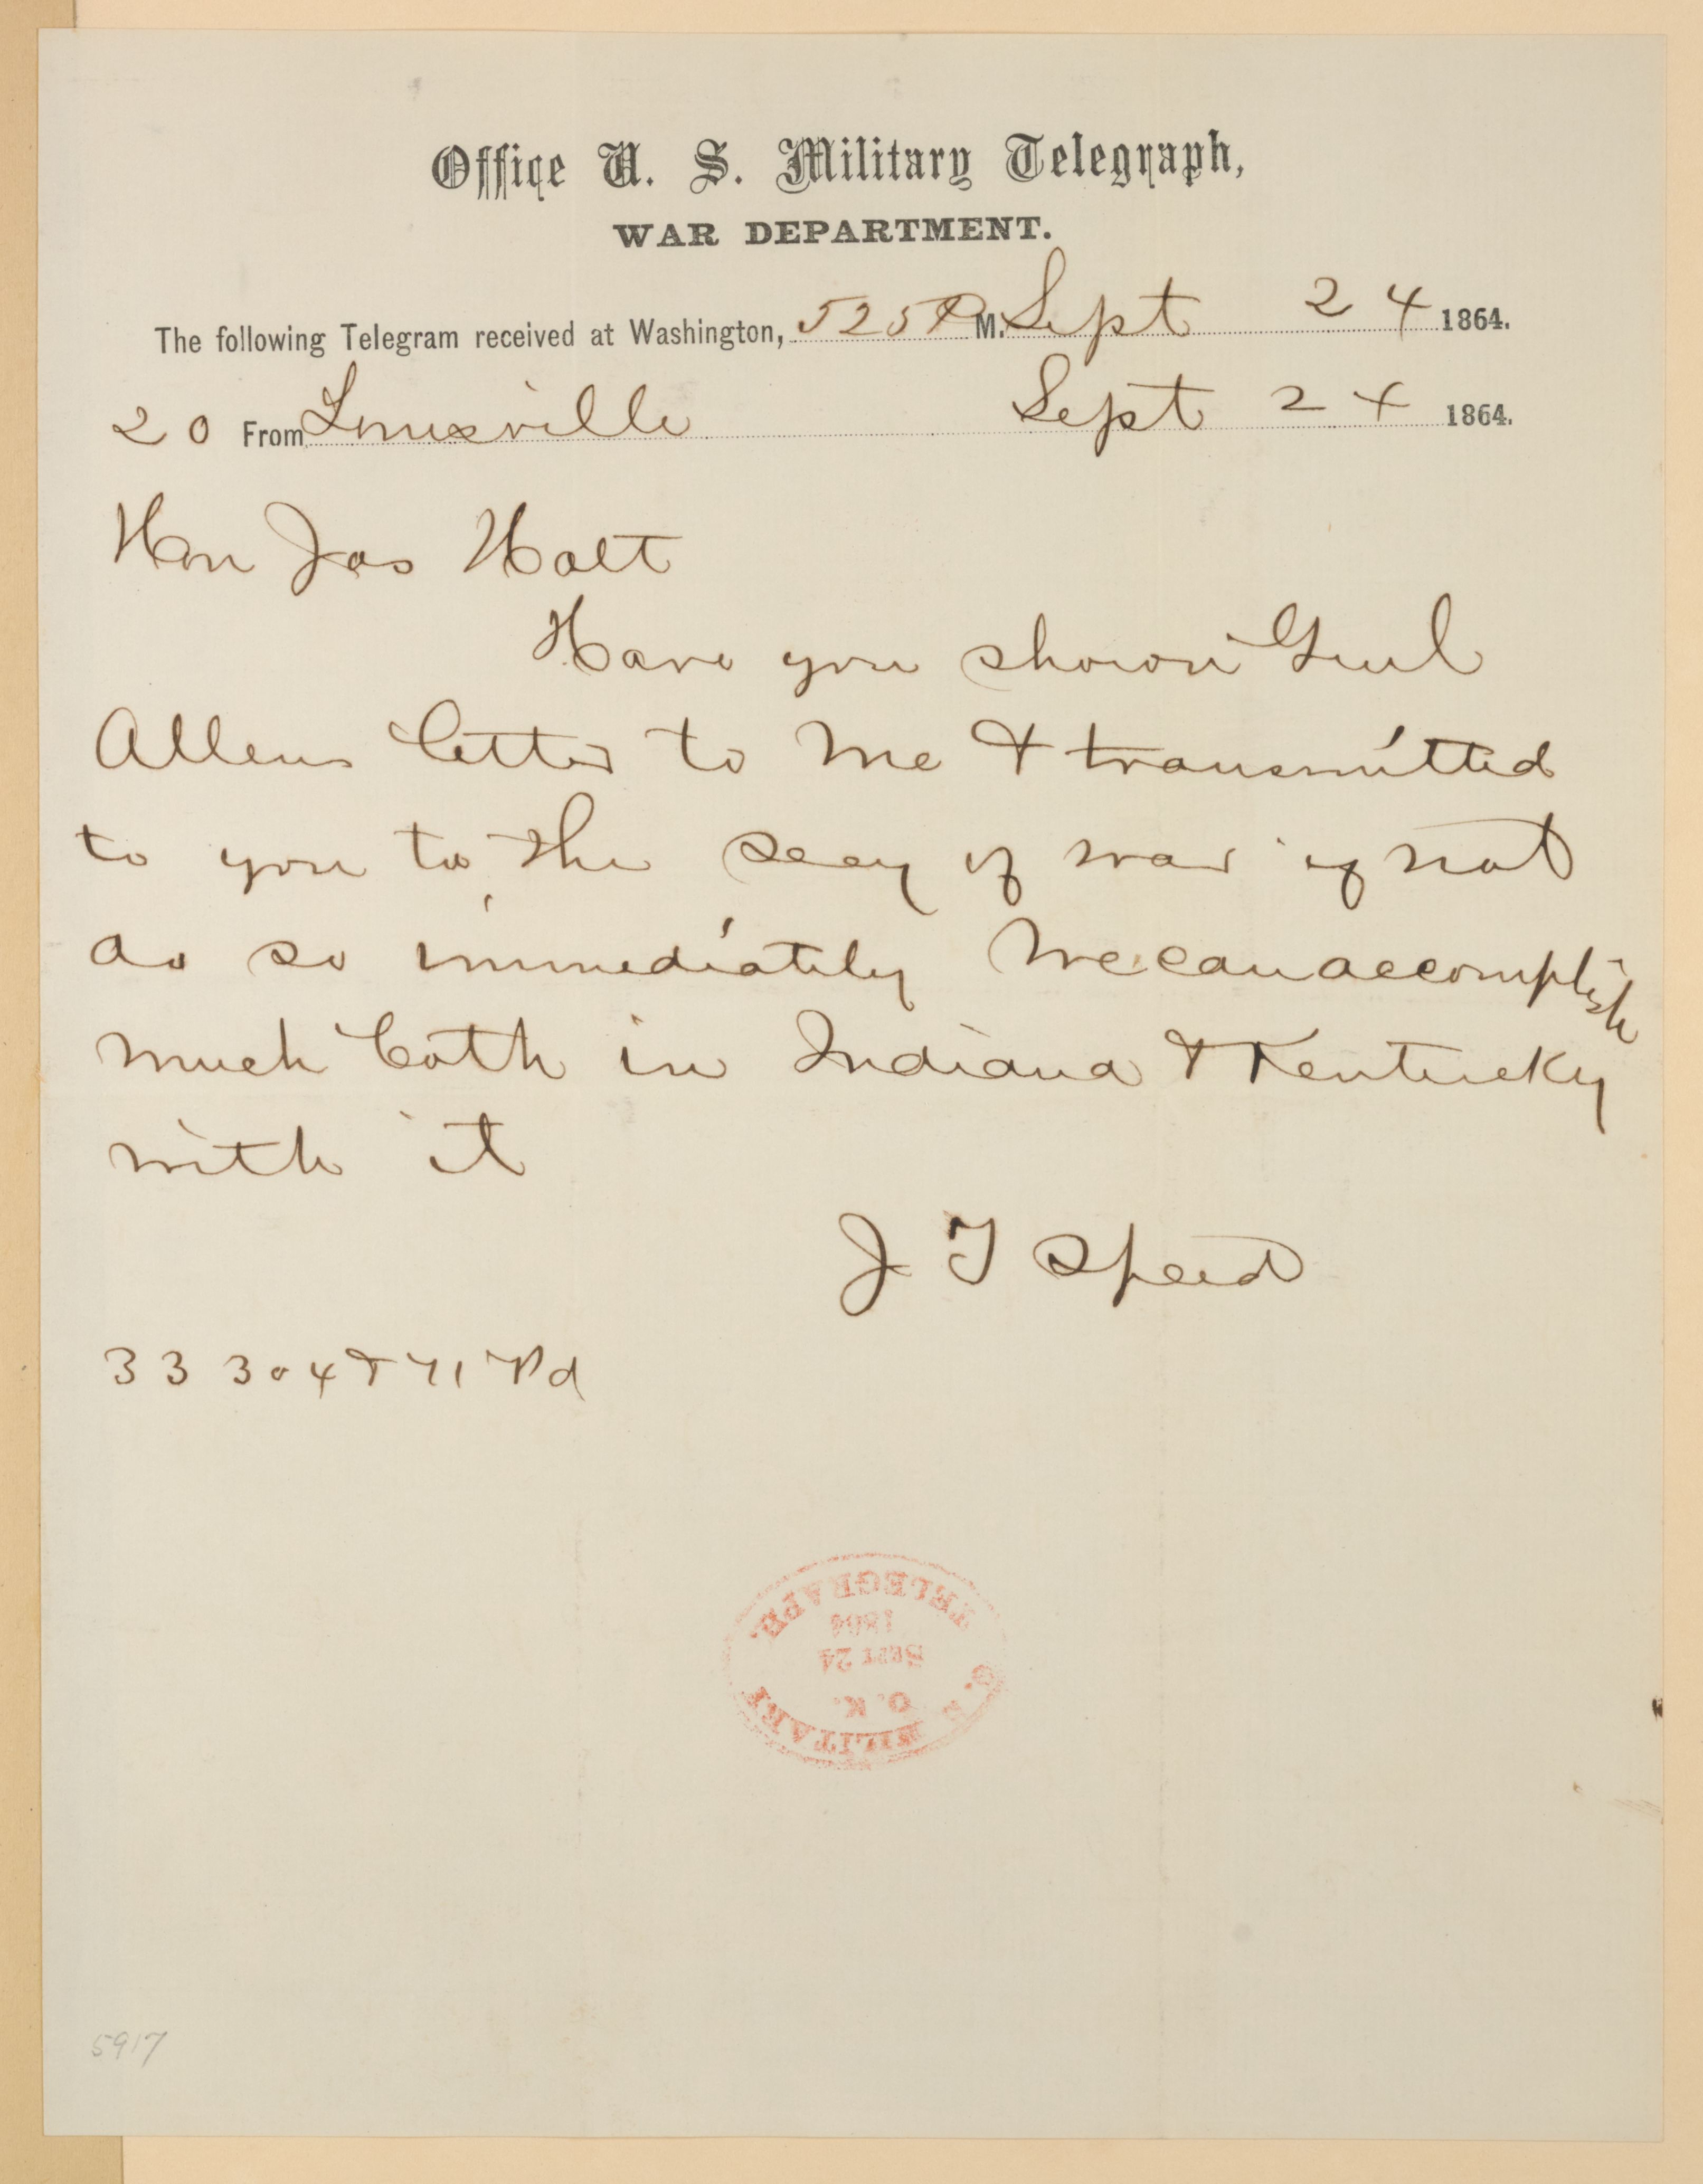 Office U. S. Military Telegraph,
WAR DEPARTMENT.
The following Telegram received at Washington, 525 P M. Sept 24 1864.
20 From Louisville Sept 24 1864.
Hon Jos Holt
Have you shown Genl
Allens letter to me & transmitted
to you to the Secy of war if not
do so immediately We can accomplish
much both in Indiana & Kentucky
with it
J T Speed
33 304 & 71 Pd
U. S. MILITARY
O. K.
SEPT 24
1864
TELEGRAPH.
5917